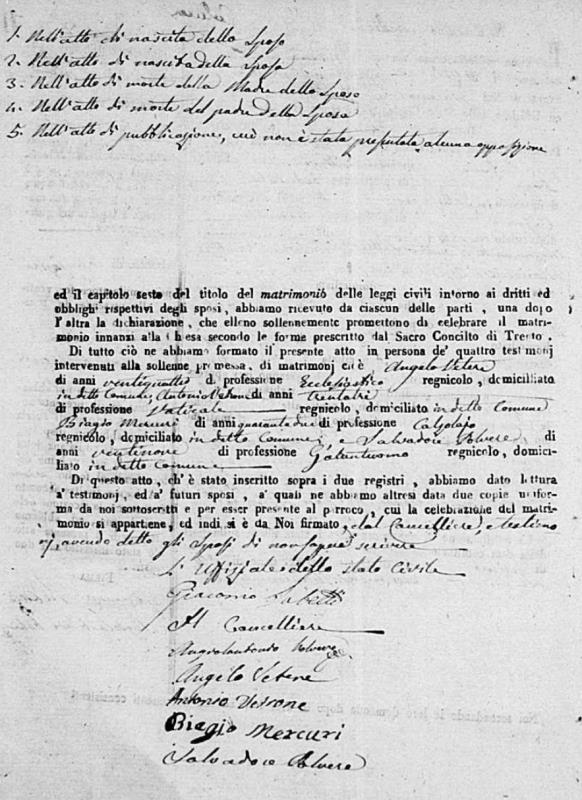 1. Nell'atto di nascita dello Sposo
2. Nell'atto di nascita della Sposa
3. Nell'atto di morte della Madre dello Sposo
4. Nell'atto di morte del padre della Sposa
5. Nell'atto di pubblicazione, cui non è stata preputata alcuna opposizione
ed il capitolo sesto del titolo del matrimonio delle leggi civili intorno ai dritti ed
obblighi rispettivi degli sposi, abbiamo ricevuto da ciascun delle parti, una dopo
l'altra la dichiarazione, che elleno sollennemente promettono di celebrare il matri-
monio innanzi alla Chiesa secondo le forme prescritto dal Sacro Concilto di Trento.
Di tutto ciò ne abbiamo formato il presente atto in persona de' quattro testimonj
intervenuti alla sollenne promessa, di matrimonj cioè Angelo Vetere
di anni ventiquattro di professione Ecclesiastico regnicolo, domiciliato
in detto Comune, Antonio Vetrone di anni trentatre
di professione Vaticale regnicolo, domiciliato in detto Comune
Biagio Mercuri di anni quarantadue di professione Calzolajo
regnicolo, domiciliato in detto Comune, e Salvadore Polvere, di
anni ventinove di professione Galantuomo regnicolo, domici-
liato in detto Comune
Di questo atto, ch' è stato inscritto sopra i due registri, abbiamo dato lettura
a' testimonj, ed a' futuri sposi, a' quali ne abbiamo altresì data due copie uniforme
da noi sottoscritti e per esser presente al parroco, cui la celebrazione del matri-
monio si appartiene, ed indi si è da Noi firmato, dal Cancelliere, e testimo
nj, avendo detto gli Sposi di non sapere scrivere
L'Uffiziale dello stato Civile
Giacomo
Il Cancelliere
Angelantonio Polvere
Angelo Vetere
Antonio Vetrone
Biagio Mercuri
Salvadore Polvere